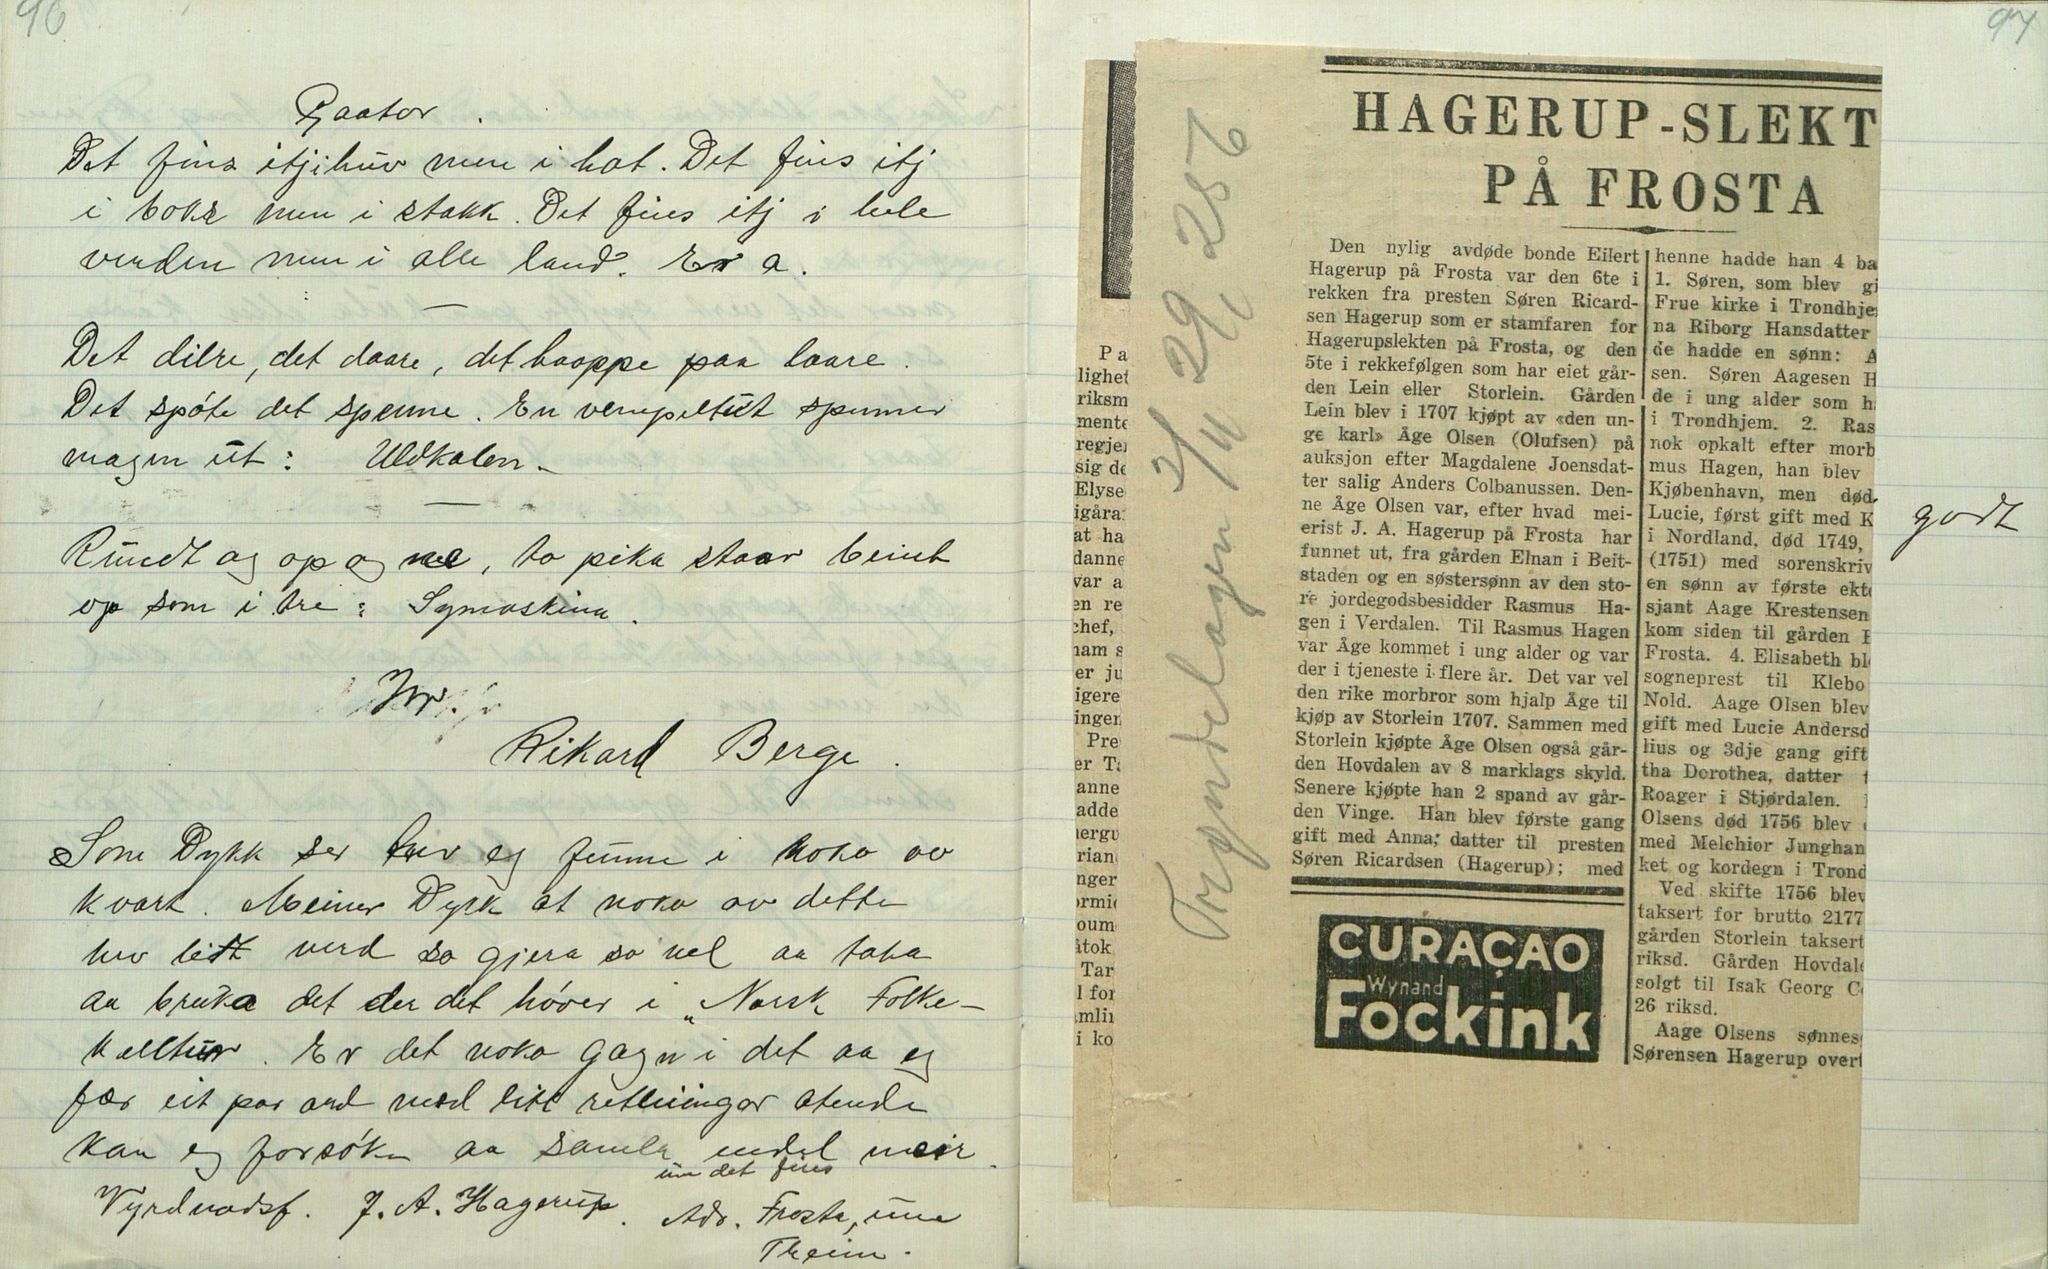 96
Gaator.
Det fins itj i huv men i hat. Det fins itj
i boks men i stakk. Det fins itj i hele
verden men i alle land. Er a.
Det dilre, det daare, det haappe paa laare.
Det spøte det spenne. En vempeltut spenner
magen ut: Uldkalen.
Rundt og op og ne, to pika staar beint
op som i tre: Symaskina.
Hr.
Rikard Berge.
Som Dykk ser hev eg funne i noko av
kvart. Meiner Dykk at noko av dette
hev litt verd so gjera so vel aa taka
aa bruka det der det høver i „Norsk Folke-
kultur. Er det noko gagn i det aa eg
fær eit par ord med litt rettleiingar
kan eg forsøke aa samla endel meir
um det fins
Vyrdnadsf. J. A. Hagerup. Adr. Frosta, une
Theim.
97
HAGERUP-SLEKT
PÅ FROSTA
Trøndelagen 2/11 29, 256
Den nylig avdøde bonde Eilert
Hagerup på Frosta var den 6te i
rekken fra presten Søren Ricard-
sen Hagerup som er stamfaren for
Hagerupslekten på Frosta, og den
5te i rekkefølgen som har eiet går-
den Lein eller Storlein. Gården
Lein blev i 1707 kjøpt av «den un-
ge karl» Åge Olsen (Olufsen) på
auksjon efter Magdalene Joensdat-
ter salig Anders Colbanussen. Den-
ne Åge Olsen var, efter hvad mei-
erist J. A. Hagerup på Frosta har
funnet ut, fra gården Elnan i Beit-
staden og en søstersønn av den sto-
re jordegodsbesidder Rasmus Ha-
gen i Verdalen. Til Rasmus Hagen
var Åge kommet i ung alder og var
der i tjeneste i flere år. Det var vel
den rike morbror som hjalp Åge til
kjøp av Storlein 1707. Sammen med
Storlein kjøpte Åge Olsen også går-
den Hovdalen av 8 marklags skyld.
Senere kjøpte han 2 spand av går-
den Vinge. Han blev første gang
gift med Anna, datter til presten
Søren Ricardsen (Hagerup); med
CURAÇAO
Wynand
Fockink
henne hadde han 4 ba
1. Søren, som blev gi
Frue kirke i Trondhje
na Riborg Hansdatter
de hadde en sønn: A
sen. Søren Aagesen H
de i ung alder som h
i Trondhjem. 2. Ras
nok opkalt efter morb
mus Hagen, han blev
Kjøbenhavn, men død
Lucie, først gift med K
i Nordland, død 1749,
(1751) med sorenskriv
en sønn av første ekte
sjant Aage Krestensen
kom siden til gården
Frosta. 4. Elisabeth bl
sogneprest til Klebo
Nold. Aage Olsen blev
gift med Lucie Andersd
lius og 3dje gang gift
tha Dorothea, datter
Roager i Stjørdalen.
Olsens død 1756 blev
med Melchior Junghan
ket og kordegn i Trond
Ved skifte 1756 blev
taksert for brutto 2177
gården Storlein taksert
riksd. Gården Hovdal
solgt til Isak Georg C
26 riksd.
Aage Olsens sønnes
Sørensen Hagerup overt
Pa
lighet
riksm
mente
regjer
sig de
Elyse
igåra
at ha
danne
var a
en re
chef,
nam s
er ju
igere
ingen
Pre
er Ta
anne
adde
nergu
rian
nger
ormi
oum
åtok
Tar
l for
mlin
i ko
godt